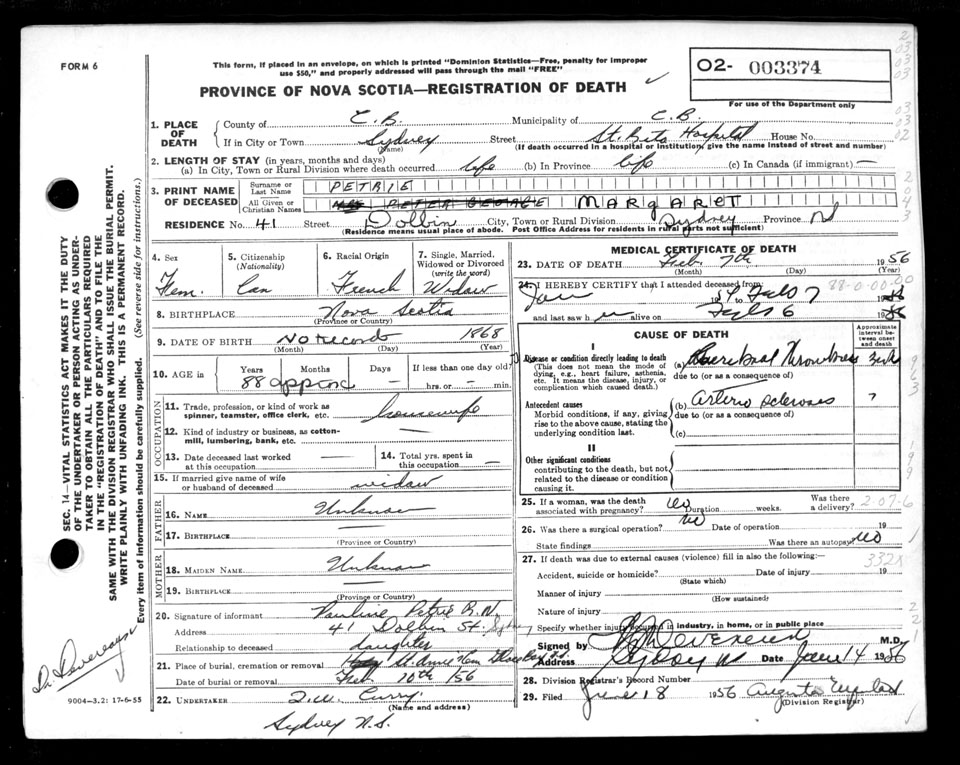 FORM 6
This form, if placed in an envelope, on which is printed "Dominion Statistics—Free, penalty for improper
use $50," and properly addressed will pass through the mail "FREE"
PROVINCE OF NOVA SCOTIA—REGISTRATION OF DEATH
02- 003374
For use of the Department only
1. PLACE OF DEATH
County of C. B. Municipality of C. B.
If in City or Town Sydney Street St. Rita Hospital House No.
(Name) (If death occurred in a hospital or institution, give the name instead of street and number)
2. LENGTH OF STAY (in years, months and days)
(a) In City, Town or Rural Division where death occurred life (b) In Province life (c) In Canada (if immigrant) —
3. PRINT NAME OF DECEASED
Surname or Last Name PETRIE
All Given or Christian Names PETER GEORGE MARGARET
RESIDENCE No. 41 Street Dolbin City, Town or Rural Division Sydney Province NS
(Residence means usual place of abode. Post Office Address for residents in rural parts not sufficient)
4. Sex
Fem.
5. Citizenship
(Nationality)
Can
6. Racial Origin
French
7. Single, Married,
Widowed or Divorced
(write the word)
Widow
8. BIRTHPLACE Nova Scotia
(Province or Country)
9. DATE OF BIRTH No Record 1868
(Month) (Day) (Year)
10. AGE in
Years Months Days If less than one day old
88 approx — — hrs. or — min.
OCCUPATION
11. Trade, profession, or kind of work as
spinner, teamster, office clerk, etc. housewife
12. Kind of industry or business, as cotton-
mill, lumbering, bank, etc. —
13. Date deceased last worked
at this occupation —
14. Total yrs. spent in
this occupation —
15. If married give name of wife
or husband of deceased widow
FATHER
16. NAME Unknown
17. BIRTHPLACE —
(Province or Country)
MOTHER
18. MAIDEN NAME Unknown
19. BIRTHPLACE —
(Province or Country)
20. Signature of informant Pauline Petrie R.N.
Address 41 Dolbin St. Sydney
Relationship to deceased daughter
21. Place of burial, cremation or removal
Date of burial or removal Feb 10th /56
22. UNDERTAKER Curry
(Name and address)
Sydney N.S.
MEDICAL CERTIFICATE OF DEATH
23. DATE OF DEATH Feb. 7th 1956
(Month) (Day) (Year)
24. I HEREBY CERTIFY that I attended deceased from
Jan to Feb 7 19
88-0-00-00
and last saw h alive on Feb 6 19
CAUSE OF DEATH
Approximate
interval be-
tween onset
and death
I
Disease or condition directly leading to death
(This does not mean the mode of
dying, e.g., heart failure, asthenia,
etc. It means the disease, injury, or
complication which caused death.)
(a) Cerebral Thrombosis
due to (or as a consequence of)
Antecedent causes
Morbid conditions, if any, giving
rise to the above cause, stating the
underlying condition last.
(b) arterio sclerosis ?
due to (or as a consequence of)
(c)
II
Other significant conditions
contributing to the death, but not
related to the disease or condition
causing it.
25. If a woman, was the death
associated with pregnancy? No Duration weeks. Was there a delivery?
26. Was there a surgical operation? No Date of operation 19
State findings Was there an autopsy? No
27. If death was due to external causes (violence) fill in also the following:—
332X
Accident, suicide or homicide? Date of injury 19
(State which)
Manner of injury
(How sustained)
Nature of injury
Specify whether injury occurred in industry, in home, or in public place
Signed by M.D.
Address Sydney Date June 14 1956
28. Division Registrar's Record Number
29. Filed June 18 1956
(Division Registrar)
SEC. 14—VITAL STATISTICS ACT MAKES IT THE DUTY
OF THE UNDERTAKER OR PERSON ACTING AS UNDER-
TAKER TO OBTAIN ALL THE PARTICULARS REQUIRED
IN THE "REGISTRATION OF DEATH" AND TO FILE THE
SAME WITH THE DIVISION REGISTRAR WHO SHALL ISSUE THE BURIAL PERMIT.
WRITE PLAINLY WITH UNFADING INK. THIS IS A PERMANENT RECORD.
Every item of information should be carefully supplied. (See reverse side for instructions.)
Dr Devereaux
9004—3.2: 17-6-55